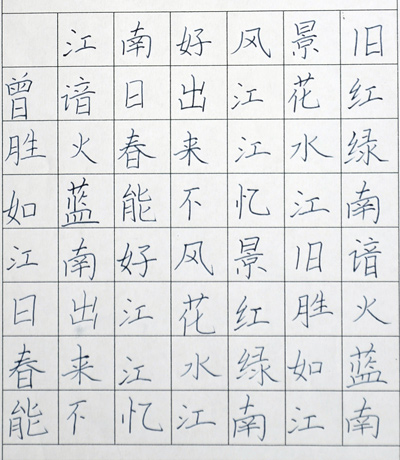 江南好风景旧
曾谙日出江花红
胜火春来江水绿
如蓝能不忆江南
江南好风景旧谙
日出江花红胜火
春来江水绿如蓝
能不忆江南江南